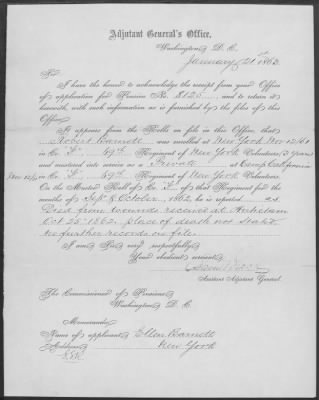 Adjutant General's Office,
Washington, D. C.
January 21st 1863
Sir:
I have the honor to acknowledge the receipt from your Office
of application for Pension No. 8125, and to return it
herewith, with such information as is furnished by the files of this
Office.
It appears from the Rolls on file in this Office, that
Robert Barnett was enrolled at New York Nov 12/61
in Co. F, 69th Regiment of New York Volunteers, 3 years
and mustered into service as a Private at Camp California
in Co. F, 69th Regiment of New York Volunteers.
On the Muster Roll of Co. F, of that Regiment for the
months of Sept & October, 1862, he is reported as
Died from wounds received at Antietam
Oct 25th 1862, place of death not stated
no further records on file
I am Sir, very respectfully,
Your obedient servant,
Assistant Adjutant General
The Commissioner of Pensions,
Washington, D. C.
Memoranda:
Name of applicant, Ellen Barnett
Address, New York